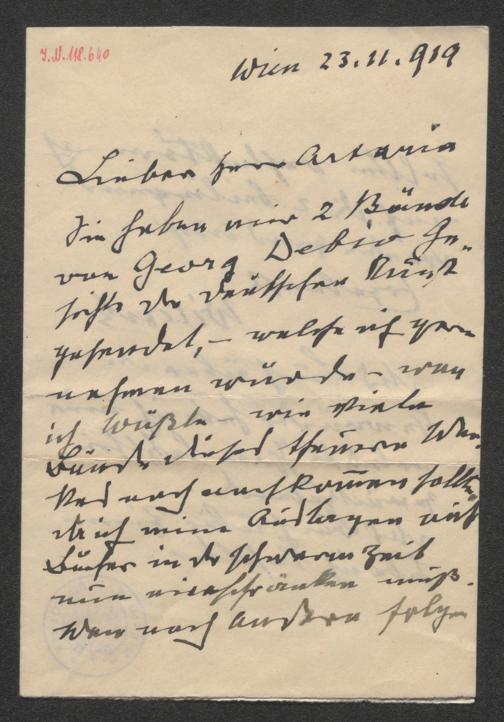 I.N. 118.640
Wien 23.11.919
Lieber Herr Artaria
Sie haben mir 2 Bände
von Georg Dehio Ge-
schichte der deutschen Kunst
gesendet, – welche ich gern
nehmen würde – wen
ich wüßte – wie viele
Bände dieses theuern Wer-
kes noch nachkom̅en sollten
da ich meine Auslagen auf
Bücher in der schweren Zeit
nun einschränken muß.
Wen noch andere folgen